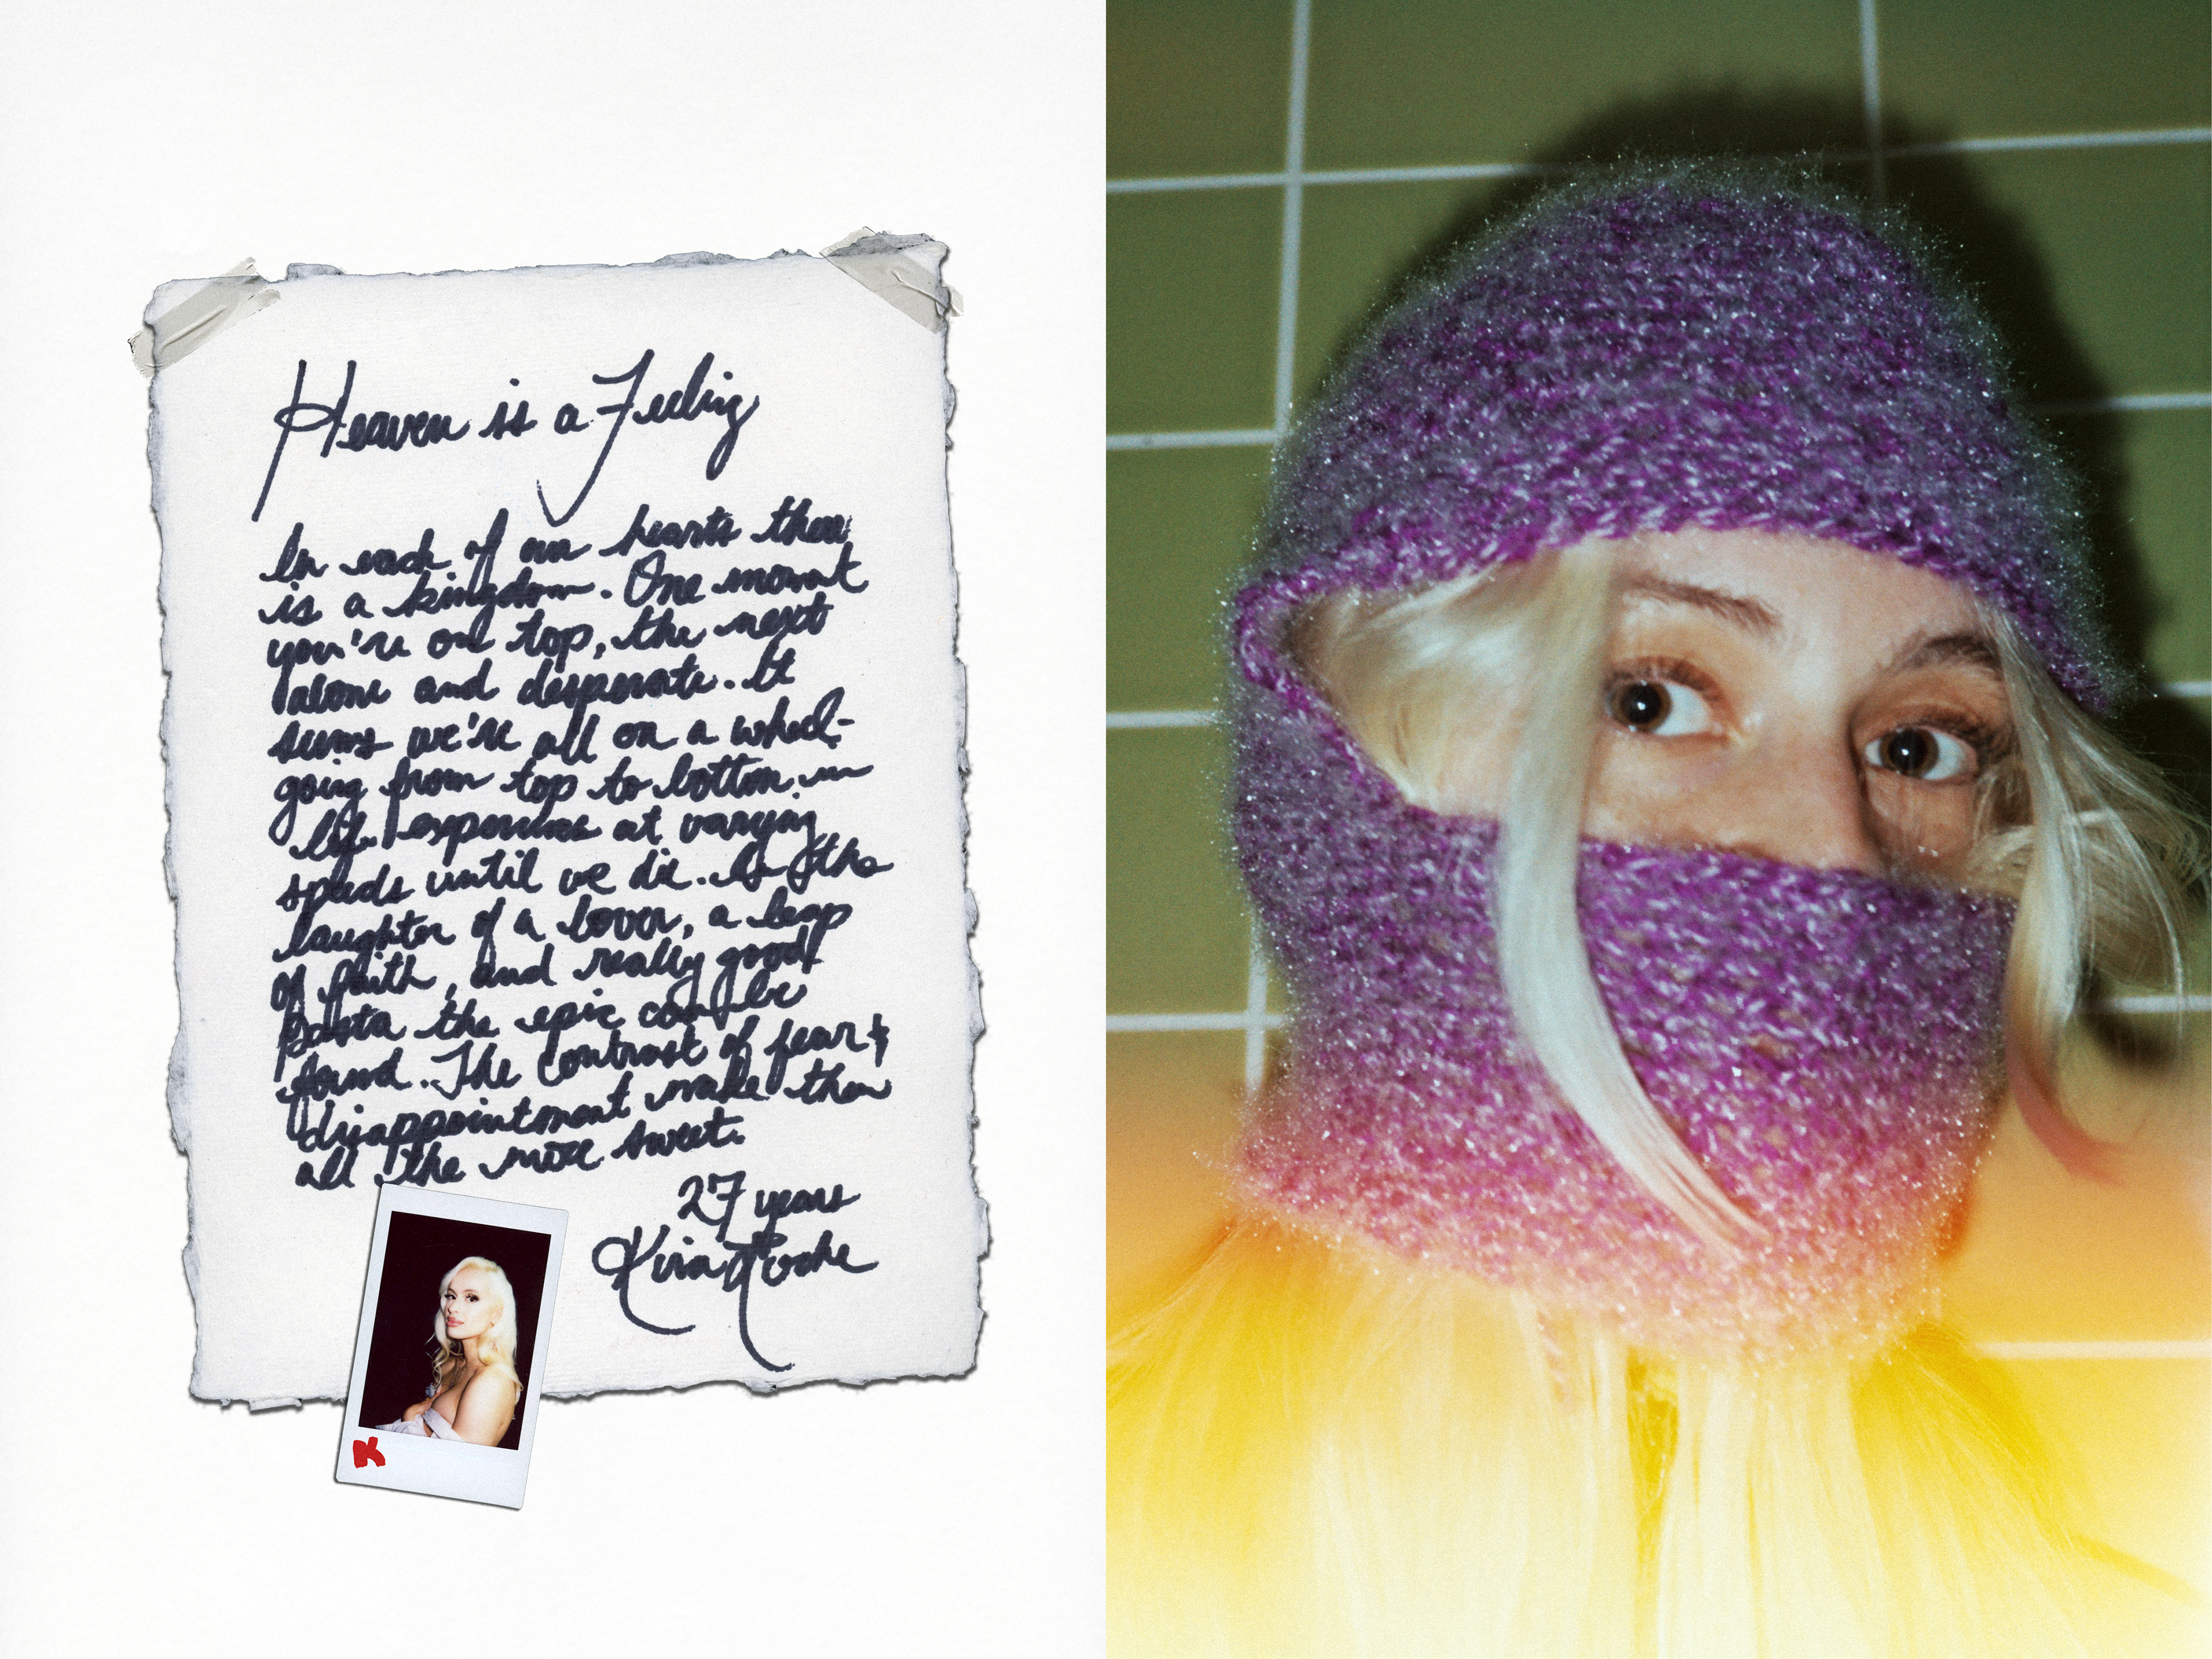 Heaven is a Feeling
In each of our hearts there
is a kingdom. One moment
you're on top, the next
alone and desperate. It
seems we're all on a wheel-
going from top to bottom in
life experiences at varying
speeds until we die. In the
laughter of a lover, a leap
of faith, and really good
pasta the epic can be
found. The contrast of fear &
disappointment make them
all the more sweet.
27 years
Kira
K